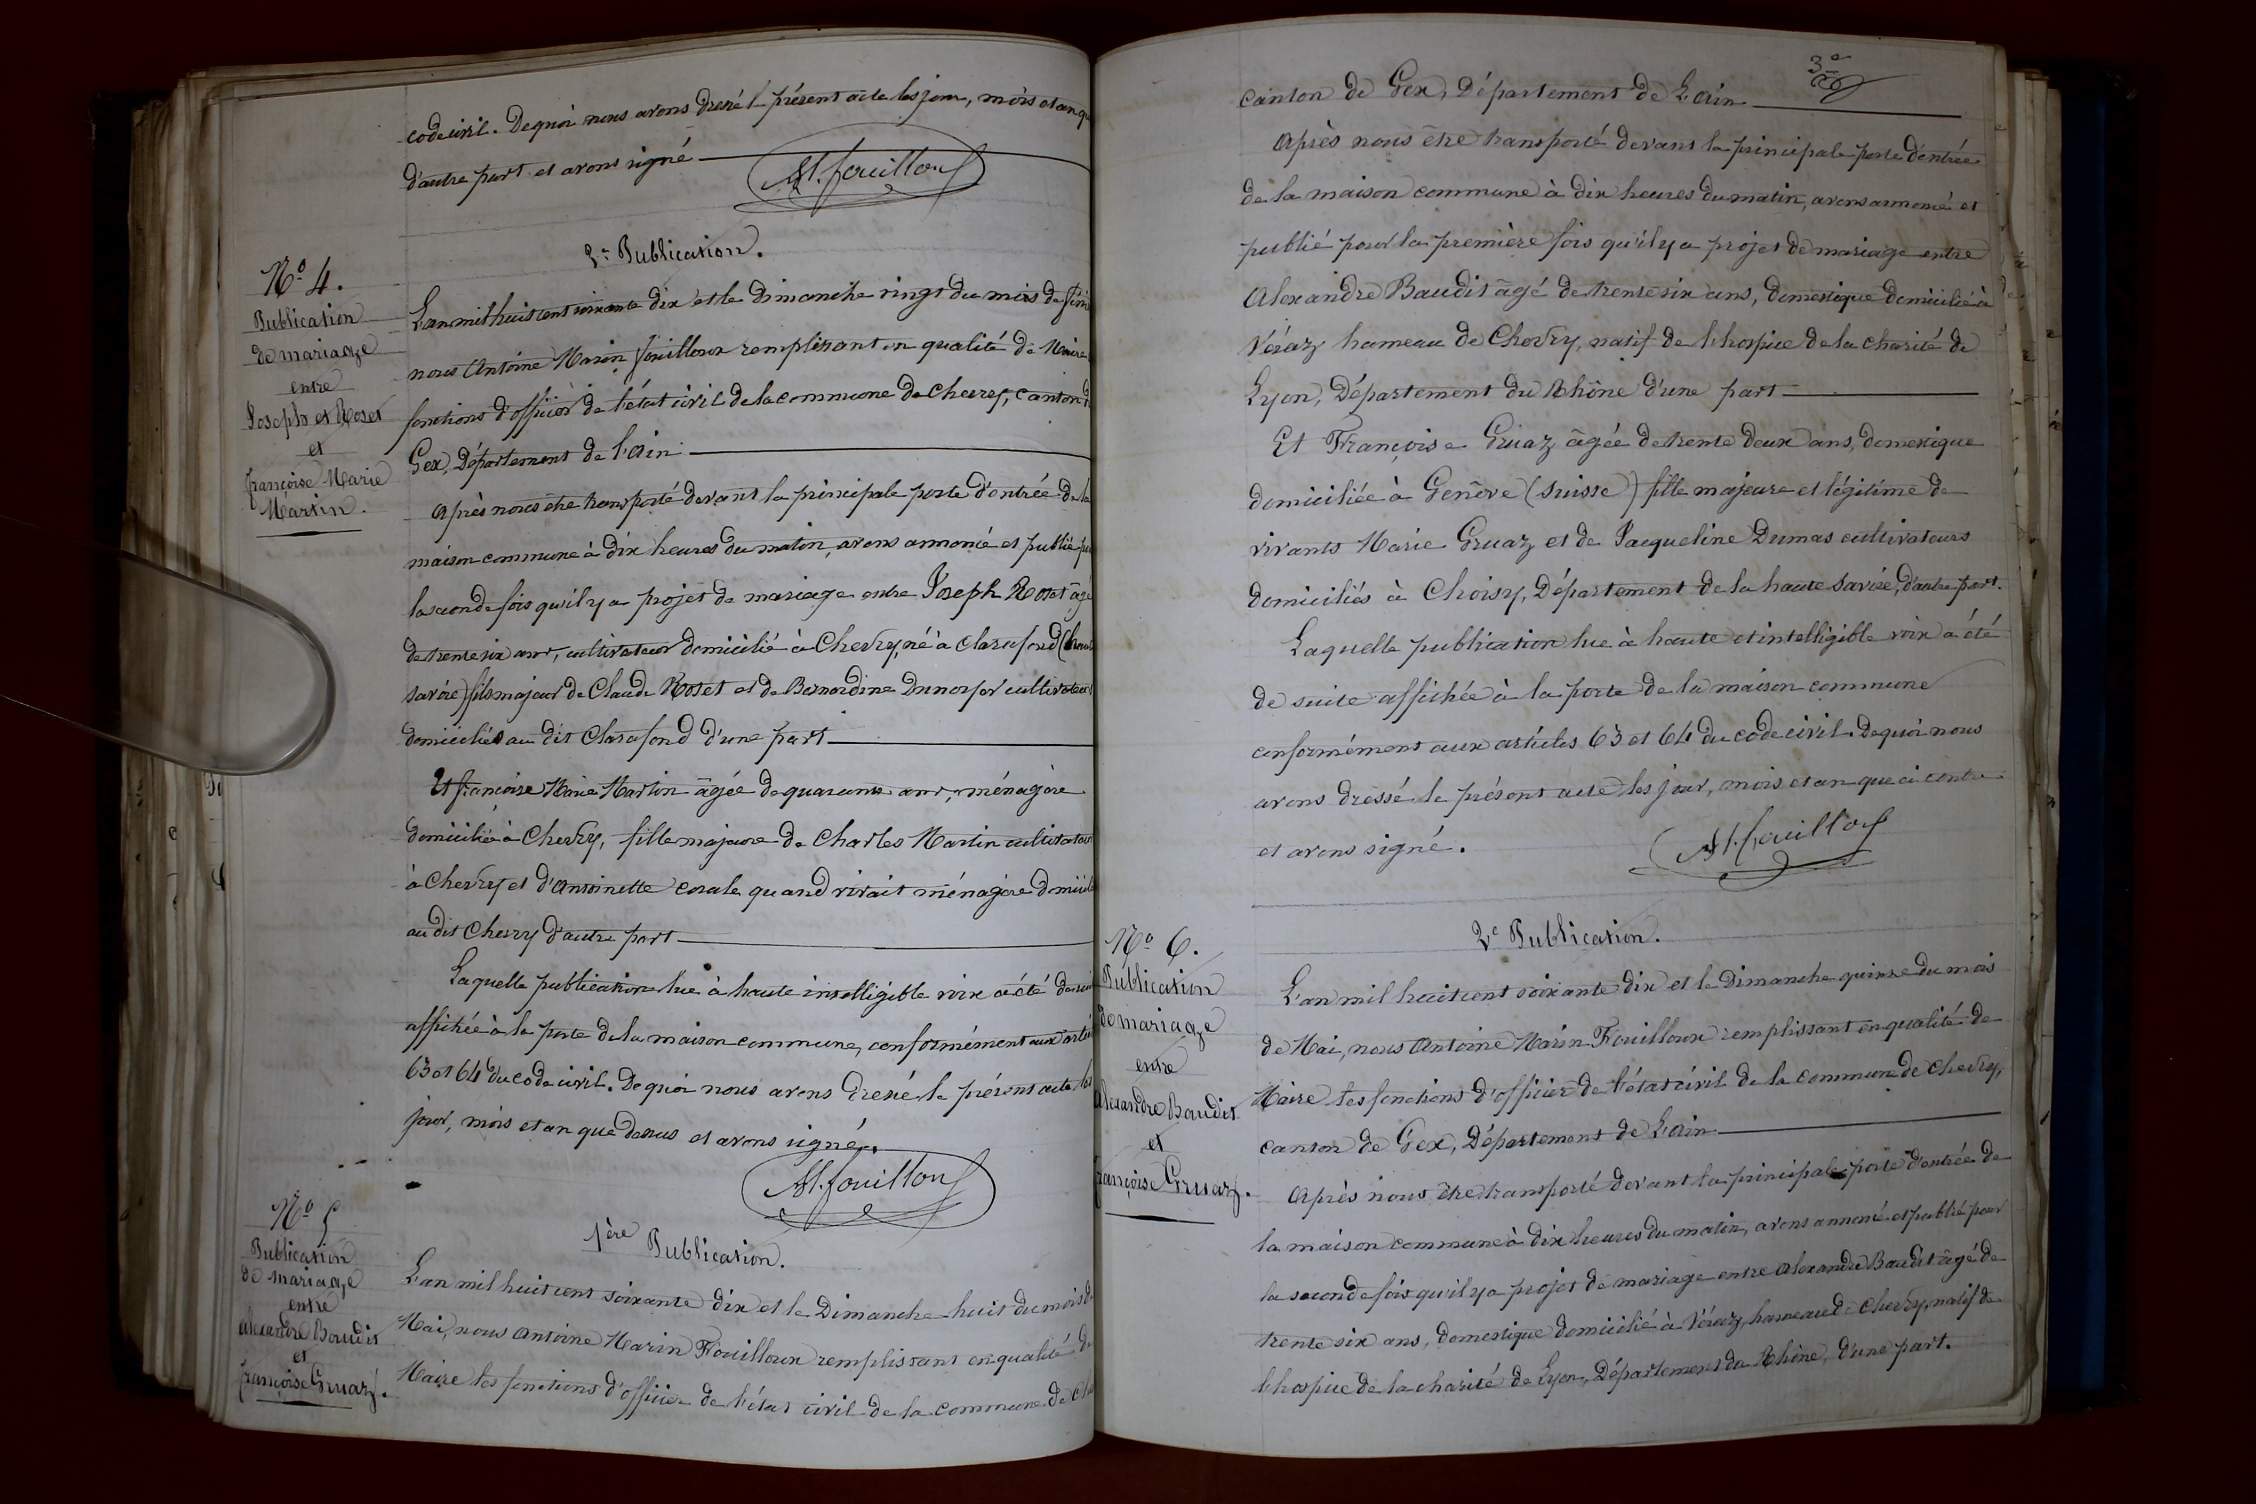 code civil. De quoi nous avons dressé le présent acte les jour, mois et an qu
d'autre part et avons signé
AM. fouilloux
2e Publication.
No 4.
Publication
de mariage
entre
Joseph et Roset
et
françoise Marie
Martin.
L'an mil huit cent soixante dix et le Dimanche vingt du mois de févri
nous Antoine Marin fouilloux remplissant en qualité de Maire
fonctions d'officier de l'état civil de la commune de Chevry, canton d
Gex, Département de l'Ain
Après nous être transporté devant la principale porte d'entrée de la
maison commune à dix heures du matin, avons annoncé et publié pu
la seconde fois qu'il y a projet de mariage entre Joseph Roset âgé
de trente six ans, cultivateur domicilié à Chevry, né à Clarafond (haute
savoie) fils majeur de Claude Roset et de Bernardine cultivateurs
domiciliés au dit Clarafond d'une part
Et françoise Marie Martin âgée de quarante ans, ménagère
domiciliée à Chevry, fille majeure de Charles Martin cultivateur
à Chevry et d'Antoinette quand vivait ménagère domicil
au dit Chevry d'autre part
Laquelle publication lue à haute intelligible voix a été de sui
affichée à la porte de la maison commune, conformément aux articl
63 et 64 du code civil. De quoi nous avons dressé le présent acte les
jour, mois et an que dessus et avons signé.
AM. fouilloux
No 5
Publication
de mariage
entre
Alexandre Baudit
et
françoise Gruaz.
1ère Publication.
L'an mil huit cent soixante dix et le Dimanche huit du mois d
Mai, nous Antoine Marin Fouilloux remplissant en qualité de
Maire les fonctions d'officier de l'état civil de la commune de Che
3e
canton de Gex, Département de L'ain
Après nous être transporté devant la principale porte d'entrée
de la maison commune à dix heures du matin, avons annoncé et
publié pour la première fois qu'il y a projet de mariage entre
Alexandre Baudit âgé de trente six ans, domestique domicilié à
Véraz hameau de Chevry, natif de l'hospice de la charité de
Lyon, Département du Rhône d'une part
Et Françoise Gruaz âgée de trente deux ans, domestique
domiciliée à Genève (Suisse) fille majeure et légitime de
vivants Marie Gruaz et de Jacqueline Dumas cultivateurs
domiciliés à Choisy, Département de la haute Savoie, d'autre part.
Laquelle publication lue à haute et intelligible voix a été
de suite affichée à la porte de la maison commune
conformément aux articles 63 et 64 du code civil. De quoi nous
avons dressé le présent acte les jour, mois et an que ci contre
et avons signé.
AM. fouilloux
2e Publication.
No 6.
Publication
de mariage
entre
Alexandre Baudit
et
françoise Gruaz.
L'an mil huit cent soixante dix et le Dimanche quinze du mois
de Mai, nous Antoine Marin Fouilloux remplissant en qualité de
Maire les fonctions d'officier de l'état civil de la commune de Chevry,
canton de Gex, Département de L'ain
Après nous être transporté devant la principale porte d'entrée de
la maison commune à dix heures du matin, avons annoncé et publié pour
la seconde fois qu'il y a projet de mariage entre Alexandre Baudit âgé de
trente six ans, domestique domicilié à Véraz, hameau de Chevry, natif de
l'hospice de la charité de Lyon, Département du Rhône, d'une part.